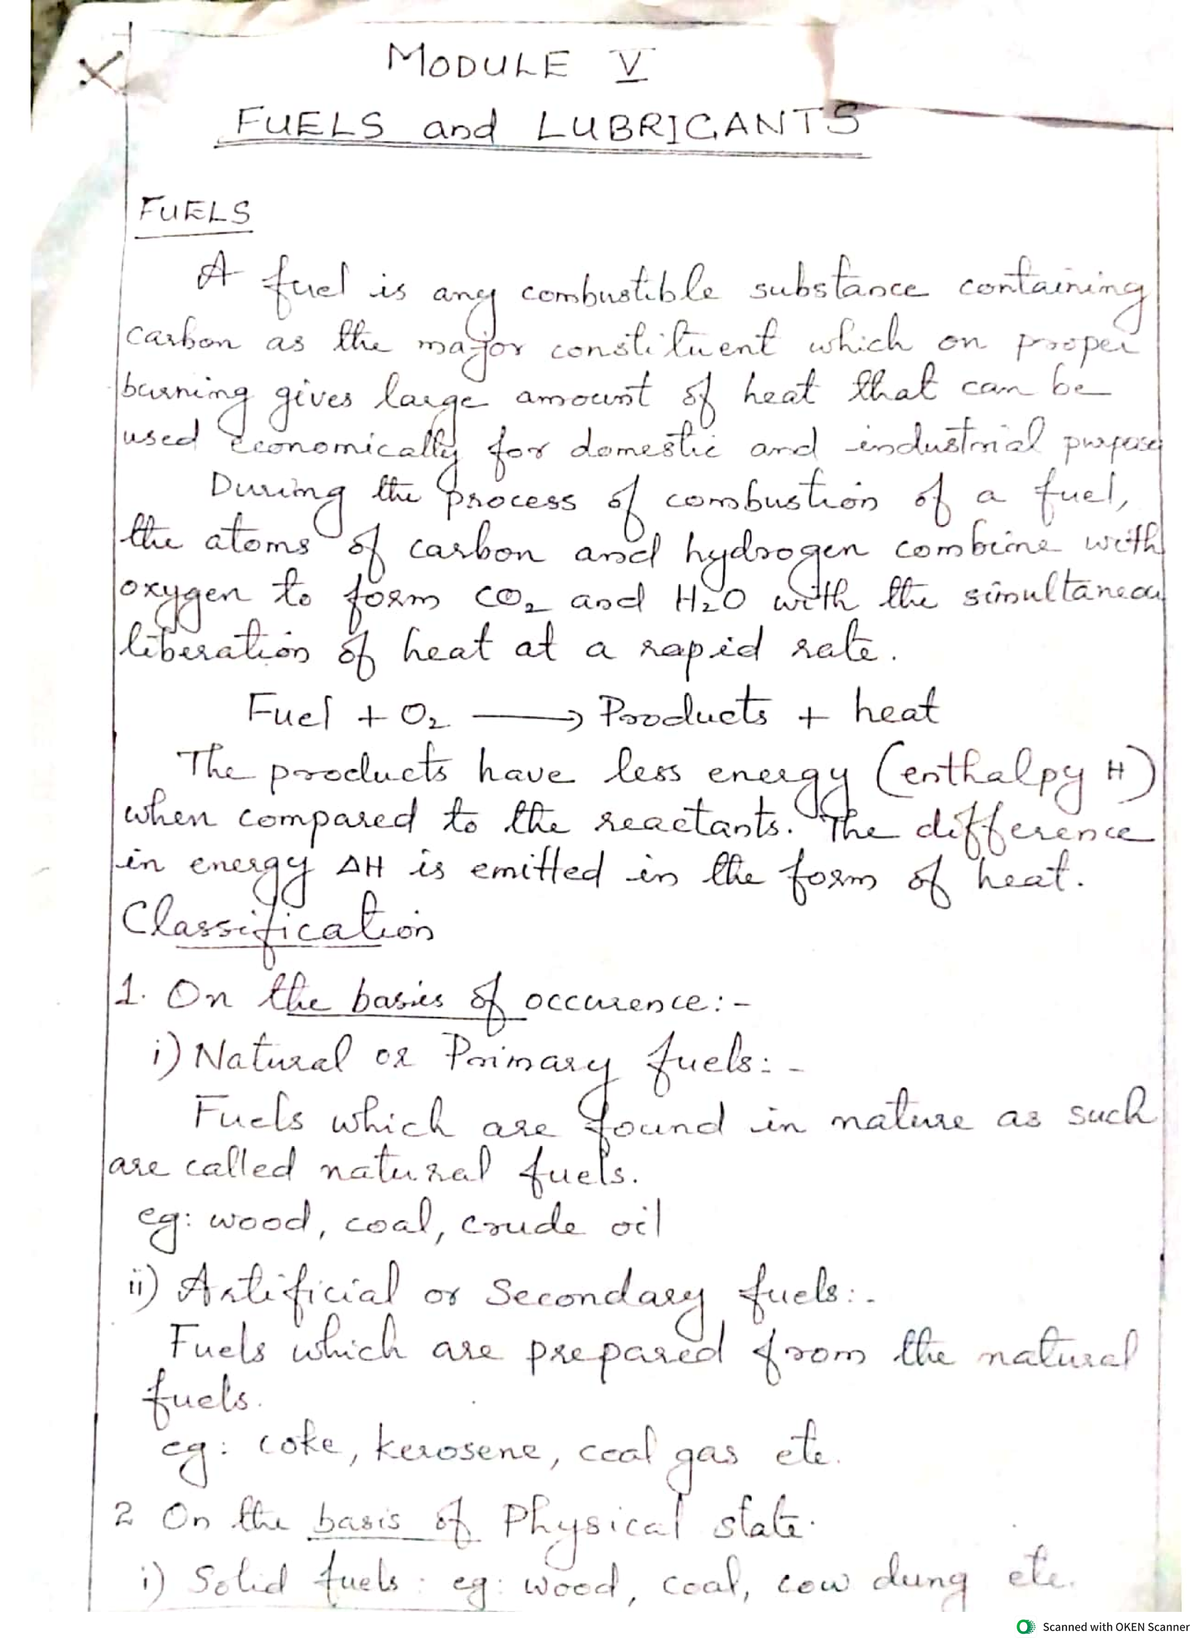 MODULE V
FUELS and LUBRICANTS
FUELS
A fuel is any combustible substance containing
carbon as the major constituent which on proper
burning gives large amount of heat that can be
used economically for domestic and industrial purpose
During the process of combustion of a fuel,
the atoms of carbon and hydrogen combine with
oxygen to form CO₂ and H₂O with the simultaneou
liberation of heat at a rapid rate.
Fuel + O₂ ⟶ Products + heat
The products have less energy (enthalpy H)
when compared to the reactants. The difference
in energy ΔH is emitted in the form of heat.
Classification
1. On the basis of occurence:-
i) Natural or Primary fuels:-
Fuels which are found in nature as such
are called natural fuels.
eg: wood, coal, crude oil
ii) Artificial or Secondary fuels:-
Fuels which are prepared from the natural
fuels.
eg: coke, kerosene, coal gas etc.
2 On the basis of Physical state.
i) Solid fuels: eg: wood, coal, cow dung etc.
Scanned with OKEN Scanner